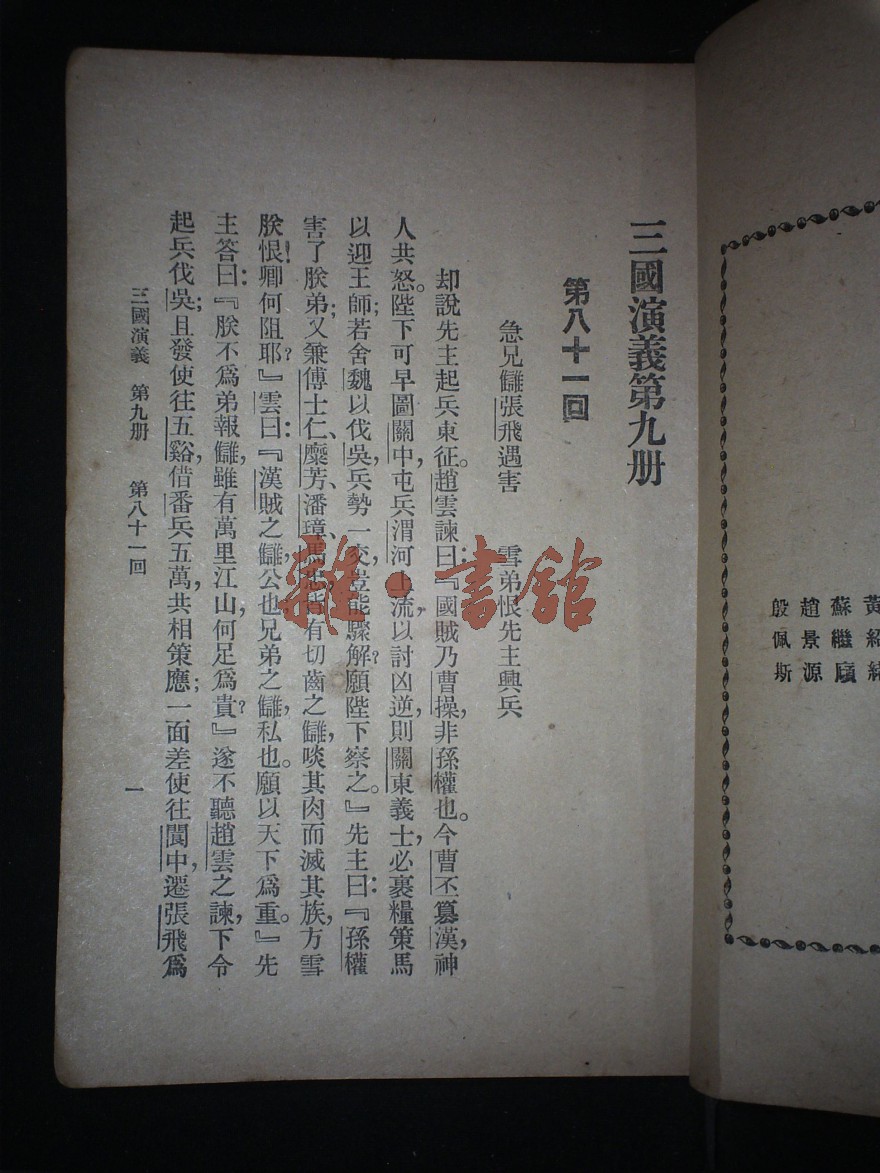 蘇繼廎
趙景源
殷佩斯
三國演義第九册
第八十一回
急兄讎張飛遇害　雪弟恨先主興兵
却說先主起兵東征。趙雲諫曰：『國賊乃曹操，非孫權也。今曹丕篡漢，神
人共怒。陛下可早圖關中，屯兵渭河上流，以討凶逆，則關東義士，必裹糧策馬
以迎王師；若舍魏以伐吳，兵勢一交，豈能驟解？願陛下察之。』先主曰：『孫權
害了朕弟；又兼傅士仁、糜芳、潘璋、馬忠皆有切齒之讎，啖其肉而滅其族，方雪
朕恨！卿何阻耶？』雲曰：『漢賊之讎，公也；兄弟之讎，私也。願以天下爲重。』先
主答曰：『朕不爲弟報讎，雖有萬里江山，何足爲貴？』遂不聽趙雲之諫，下令
起兵伐吳；且發使往五谿，借番兵五萬，共相策應；一面差使往閬中，遷張飛爲
三國演義　第九册　第八十一回　一
雜·書館